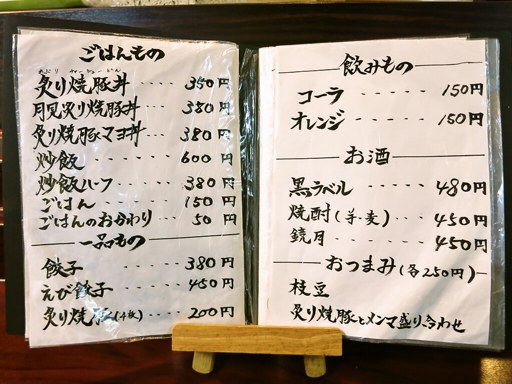 ごはんもの
あぶり チャーシューどん
炙り焼豚丼 ‥‥ 350円
月見炙り焼豚丼 ‥‥ 380円
炙り焼豚マヨ丼 ‥‥ 380円
炒飯 ‥‥‥ 600円
炒飯ハーフ ‥‥‥ 380円
ごはん ‥‥‥ 150円
ごはんのおかわり ‥‥ 50円
一品もの
餃子 ‥‥‥ 380円
えび餃子 ‥‥‥ 450円
炙り焼豚(4枚) ‥‥ 200円
飲みもの
コーラ ‥‥‥ 150円
オレンジ ‥‥‥ 150円
お酒
黒ラベル ‥‥‥ 480円
焼酎(芋・麦) ‥‥ 450円
鏡月 ‥‥‥ 450円
おつまみ(各250円)
枝豆
炙り焼豚とメンマ盛り合わせ